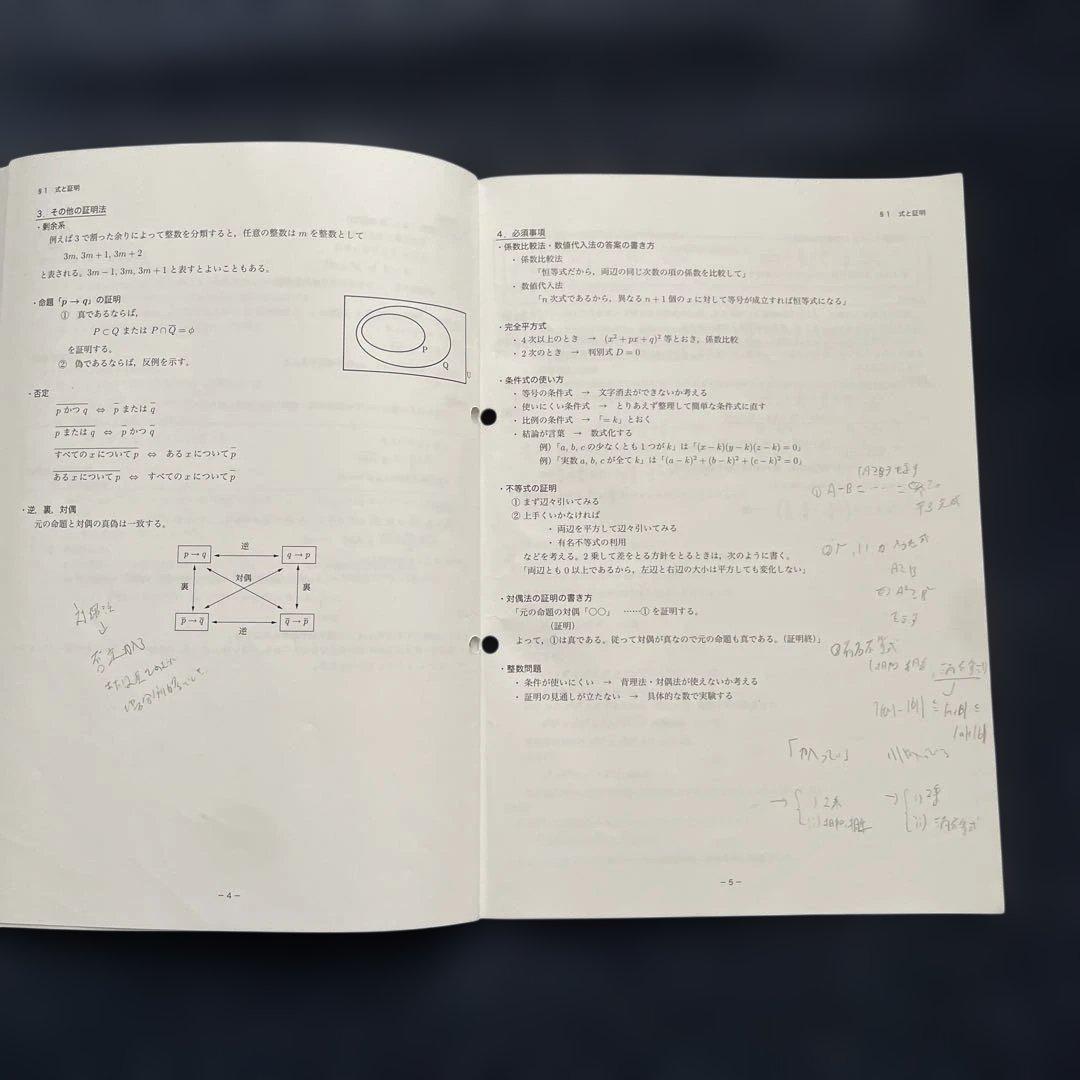 §1 式と証明
3. その他の証明法
・剰余系
例えば3で割った余りによって整数を分類すると，任意の整数は m を整数として
3m, 3m+1, 3m+2
と表される。3m−1, 3m, 3m+1 と表すとよいこともある。
・命題「p→q」の証明
① 真であるならば，
P⊂Q または P∩Q̅=φ
を証明する。
② 偽であるならば，反例を示す。
P
Q
U
・否定
p̅ ̅か̅つ̅ ̅q̅ ⇔ p̅ または q̅
p̅ ̅ま̅た̅は̅ ̅q̅ ⇔ p̅ かつ q̅
す̅べ̅て̅の̅ ̅x̅ ̅に̅つ̅い̅て̅ ̅p̅ ⇔ ある x について p̅
あ̅る̅ ̅x̅ ̅に̅つ̅い̅て̅ ̅p̅ ⇔ すべての x について p̅
・逆，裏，対偶
元の命題と対偶の真偽は一致する。
p→q 逆 q→p
裏 対偶 裏
p̅→q̅ 逆 q̅→p̅
対偶法
↓
否定
−4−
§1 式と証明
4. 必須事項
・係数比較法・数値代入法の答案の書き方
・係数比較法
「恒等式だから，両辺の同じ次数の項の係数を比較して」
・数値代入法
「n 次式であるから，異なる n+1 個の x に対して等号が成立すれば恒等式になる」
・完全平方式
・4次以上のとき → (x²+px+q)² 等とおき，係数比較
・2次のとき → 判別式 D=0
・条件式の使い方
・等号の条件式 → 文字消去ができないか考える
・使いにくい条件式 → とりあえず整理して簡単な条件式に直す
・比例の条件式 → 「=k」とおく
・結論が言葉 → 数式化する
例)「a, b, c の少なくとも1つが k」は「(x−k)(y−k)(z−k)=0」
例)「実数 a, b, c が全て k」は「(a−k)²+(b−k)²+(c−k)²=0」
・不等式の証明
① まず辺々引いてみる
② 上手くいかなければ
・両辺を平方して辺々引いてみる
・有名不等式の利用
などを考える。2乗して差をとる方針をとるときは，次のように書く。
「両辺とも0以上であるから，左辺と右辺の大小は平方しても変化しない」
・対偶法の証明の書き方
「元の命題の対偶「○○」 ……① を証明する。
(証明)
よって，①は真である。従って対偶が真なので元の命題も真である。(証明終)」
・整数問題
・条件が使いにくい → 背理法・対偶法が使えないか考える
・証明の見通しが立たない → 具体的な数で実験する
① A−B = …… =
平方完成
A≧B
⇔ A²≧B²
有名不等式
相加相乗
→ { i) 2乗
ii) 相加・相乗
→ { i) 2乗
ii) 三角不等式
−5−